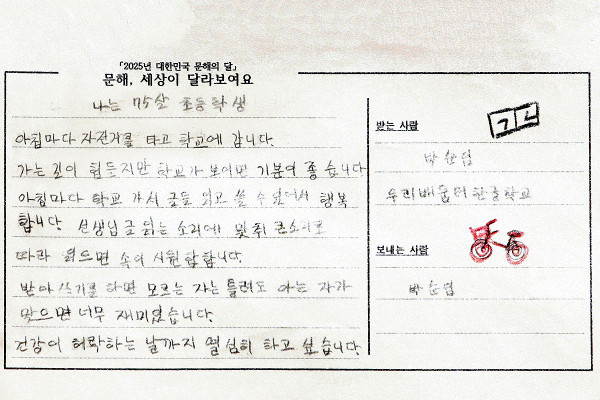 「2025년 대한민국 문해의 달」
문해, 세상이 달라보여요
나는 75살 초등학생
아침마다 자전거를 타고 학교에 갑니다.
가는 길이 힘든지만 학교가 보이면 기분이 좋습니다
아침마다 학교 가서 글을 읽고 쓸 수 있어서 행복
합니다. 선생님 글 읽는 소리에 맞춰 큰소리로
따라 읽으면 속이 시원탐합니다.
받아쓰기를 하면 모르는 자는 틀려도 아는 자가
맞으면 너무 재미있습니다.
건강이 허락하는 날까지 열심히 하고 싶습니다.
받는 사람
박순덤
우리배움터한글학교
보내는 사람
박순덤